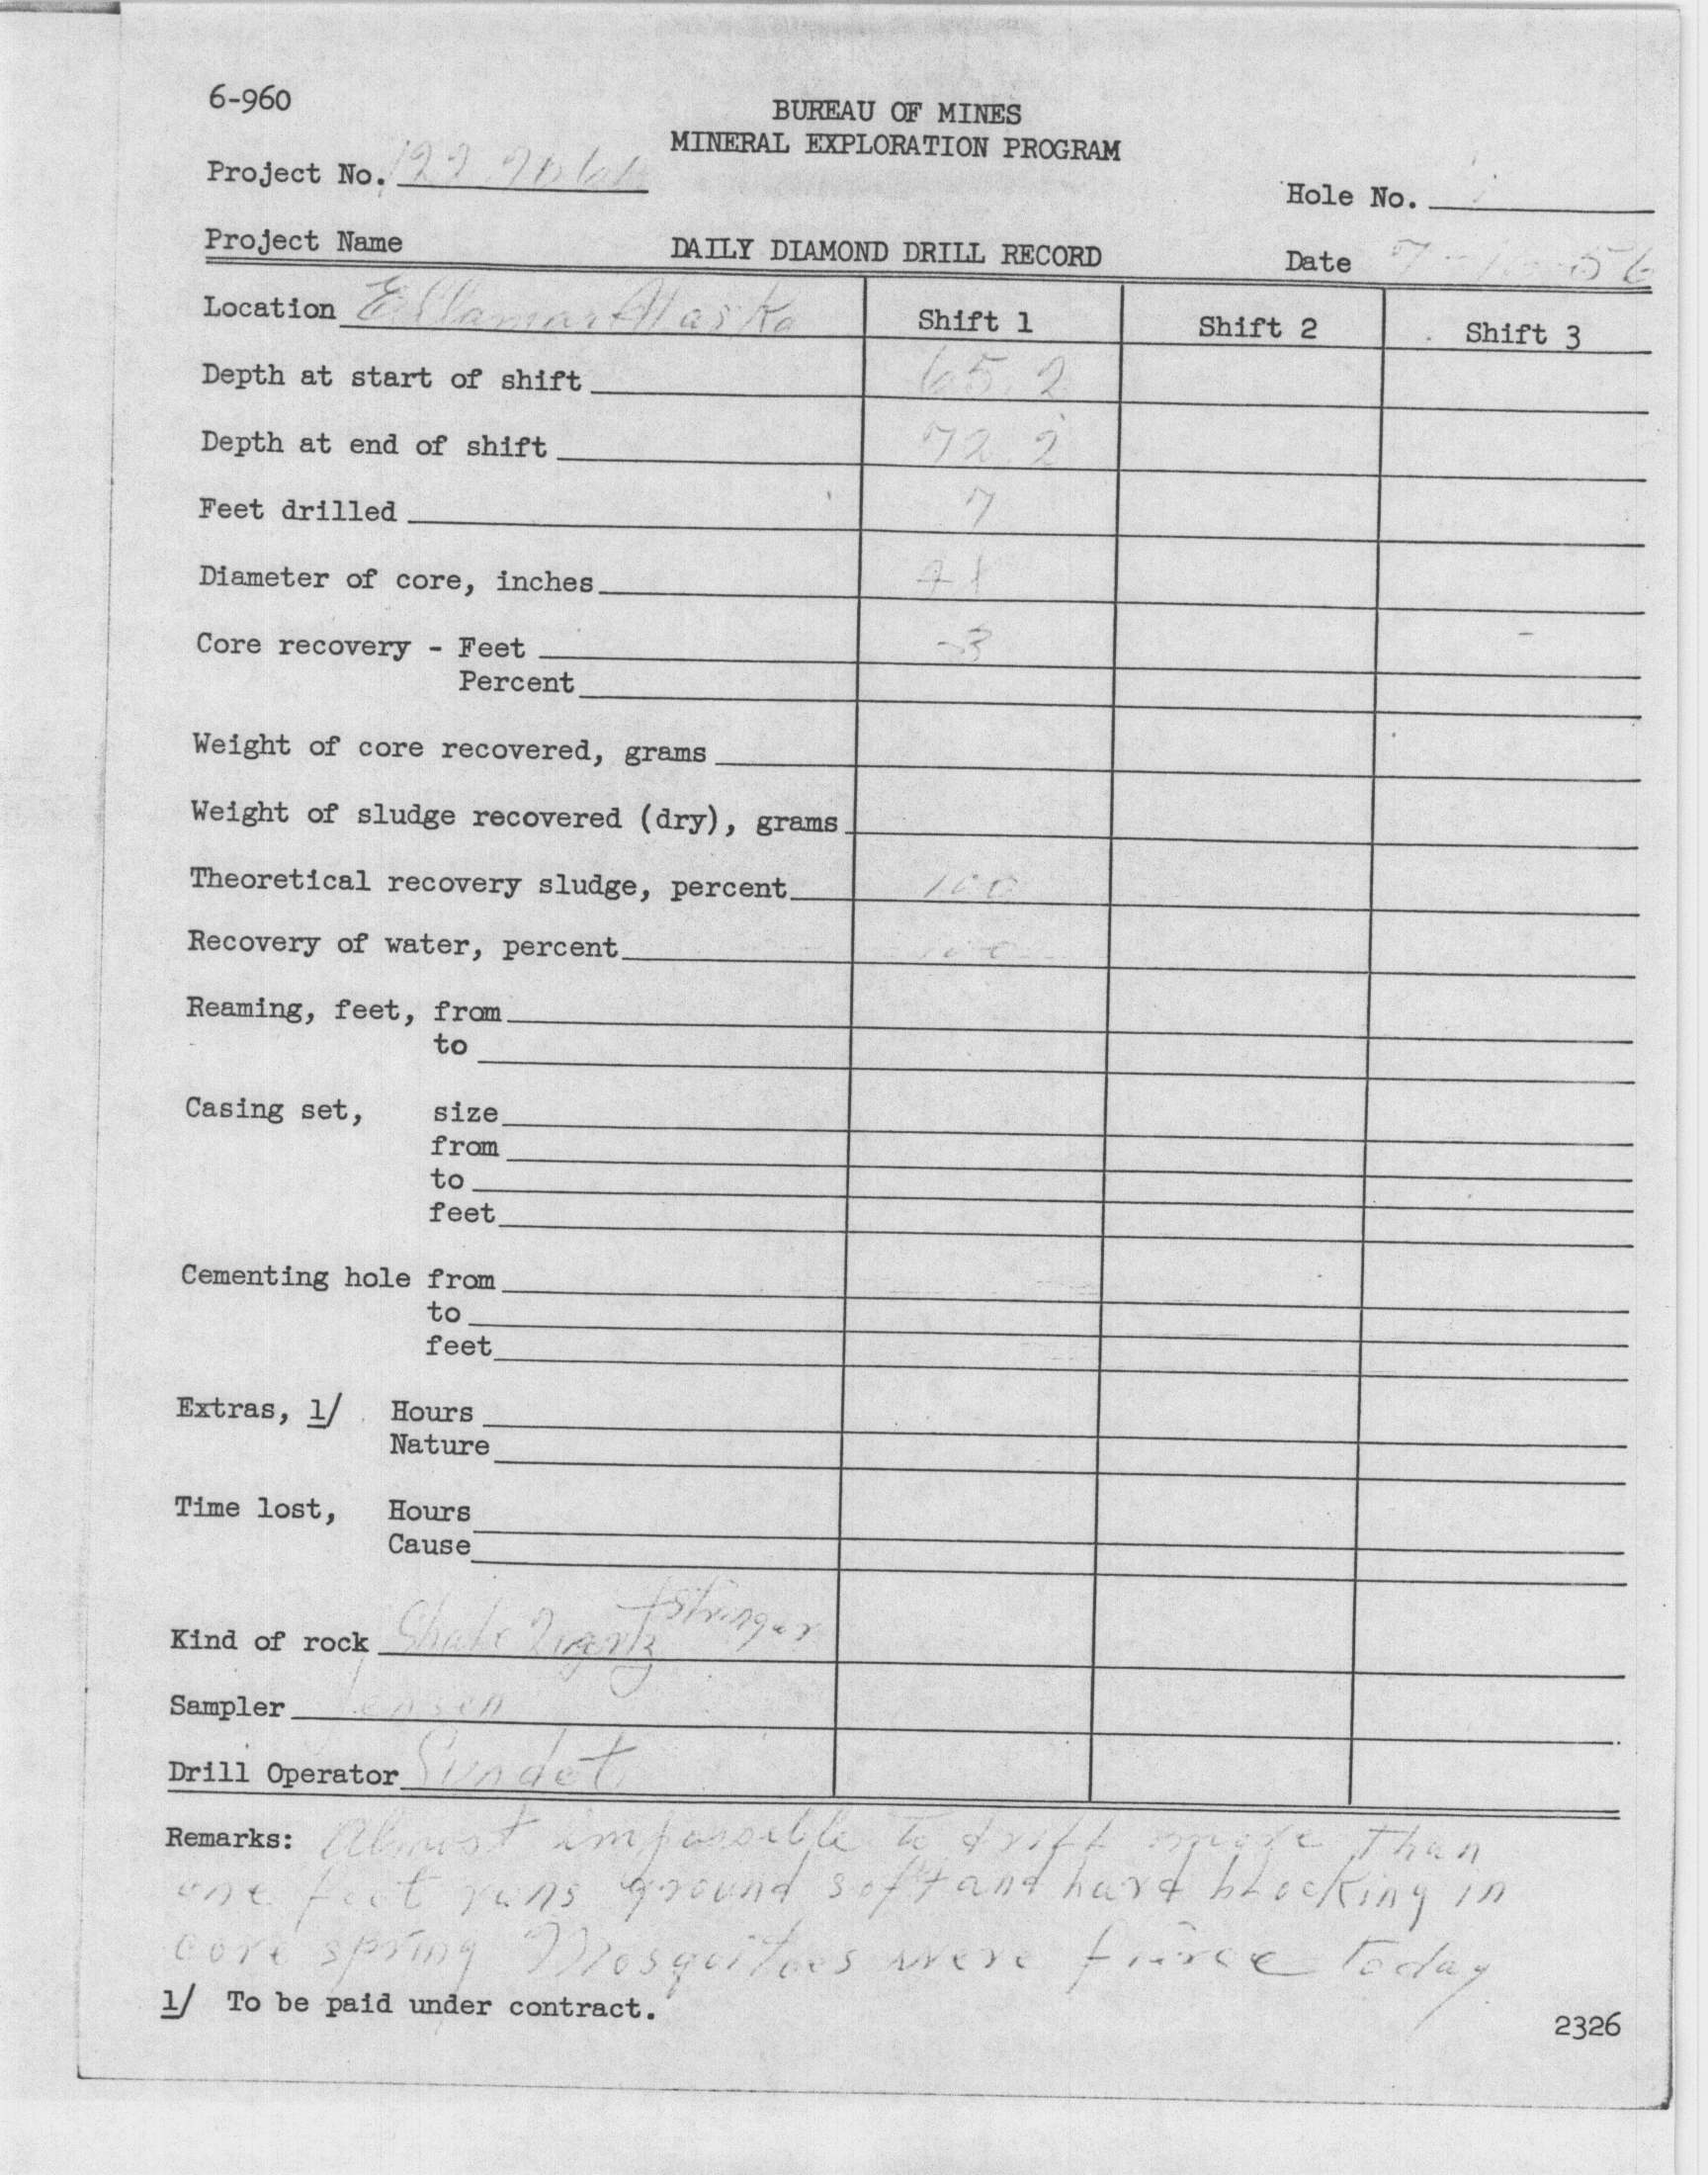 6-960
BUREAU OF MINES
MINERAL EXPLORATION PROGRAM
Project No.
Hole No.
Project Name DAILY DIAMOND DRILL RECORD Date
Location Ellamar Alaska Shift 1 Shift 2 Shift 3
Depth at start of shift 65.2
Depth at end of shift 72.2
Feet drilled 7
Diameter of core, inches
Core recovery - Feet
Percent
Weight of core recovered, grams
Weight of sludge recovered (dry), grams
Theoretical recovery sludge, percent 100
Recovery of water, percent 100
Reaming, feet, from
to
Casing set, size
from
to
feet
Cementing hole from
to
feet
Extras, 1/ Hours
Nature
Time lost, Hours
Cause
Kind of rock Stringer
Sampler Jensen
Drill Operator Sundet
Remarks: Almost impossible to drill more than
one foot runs ground soft and hard blocking in
core spring Mosquitoes were fierce today
1/ To be paid under contract.
2326